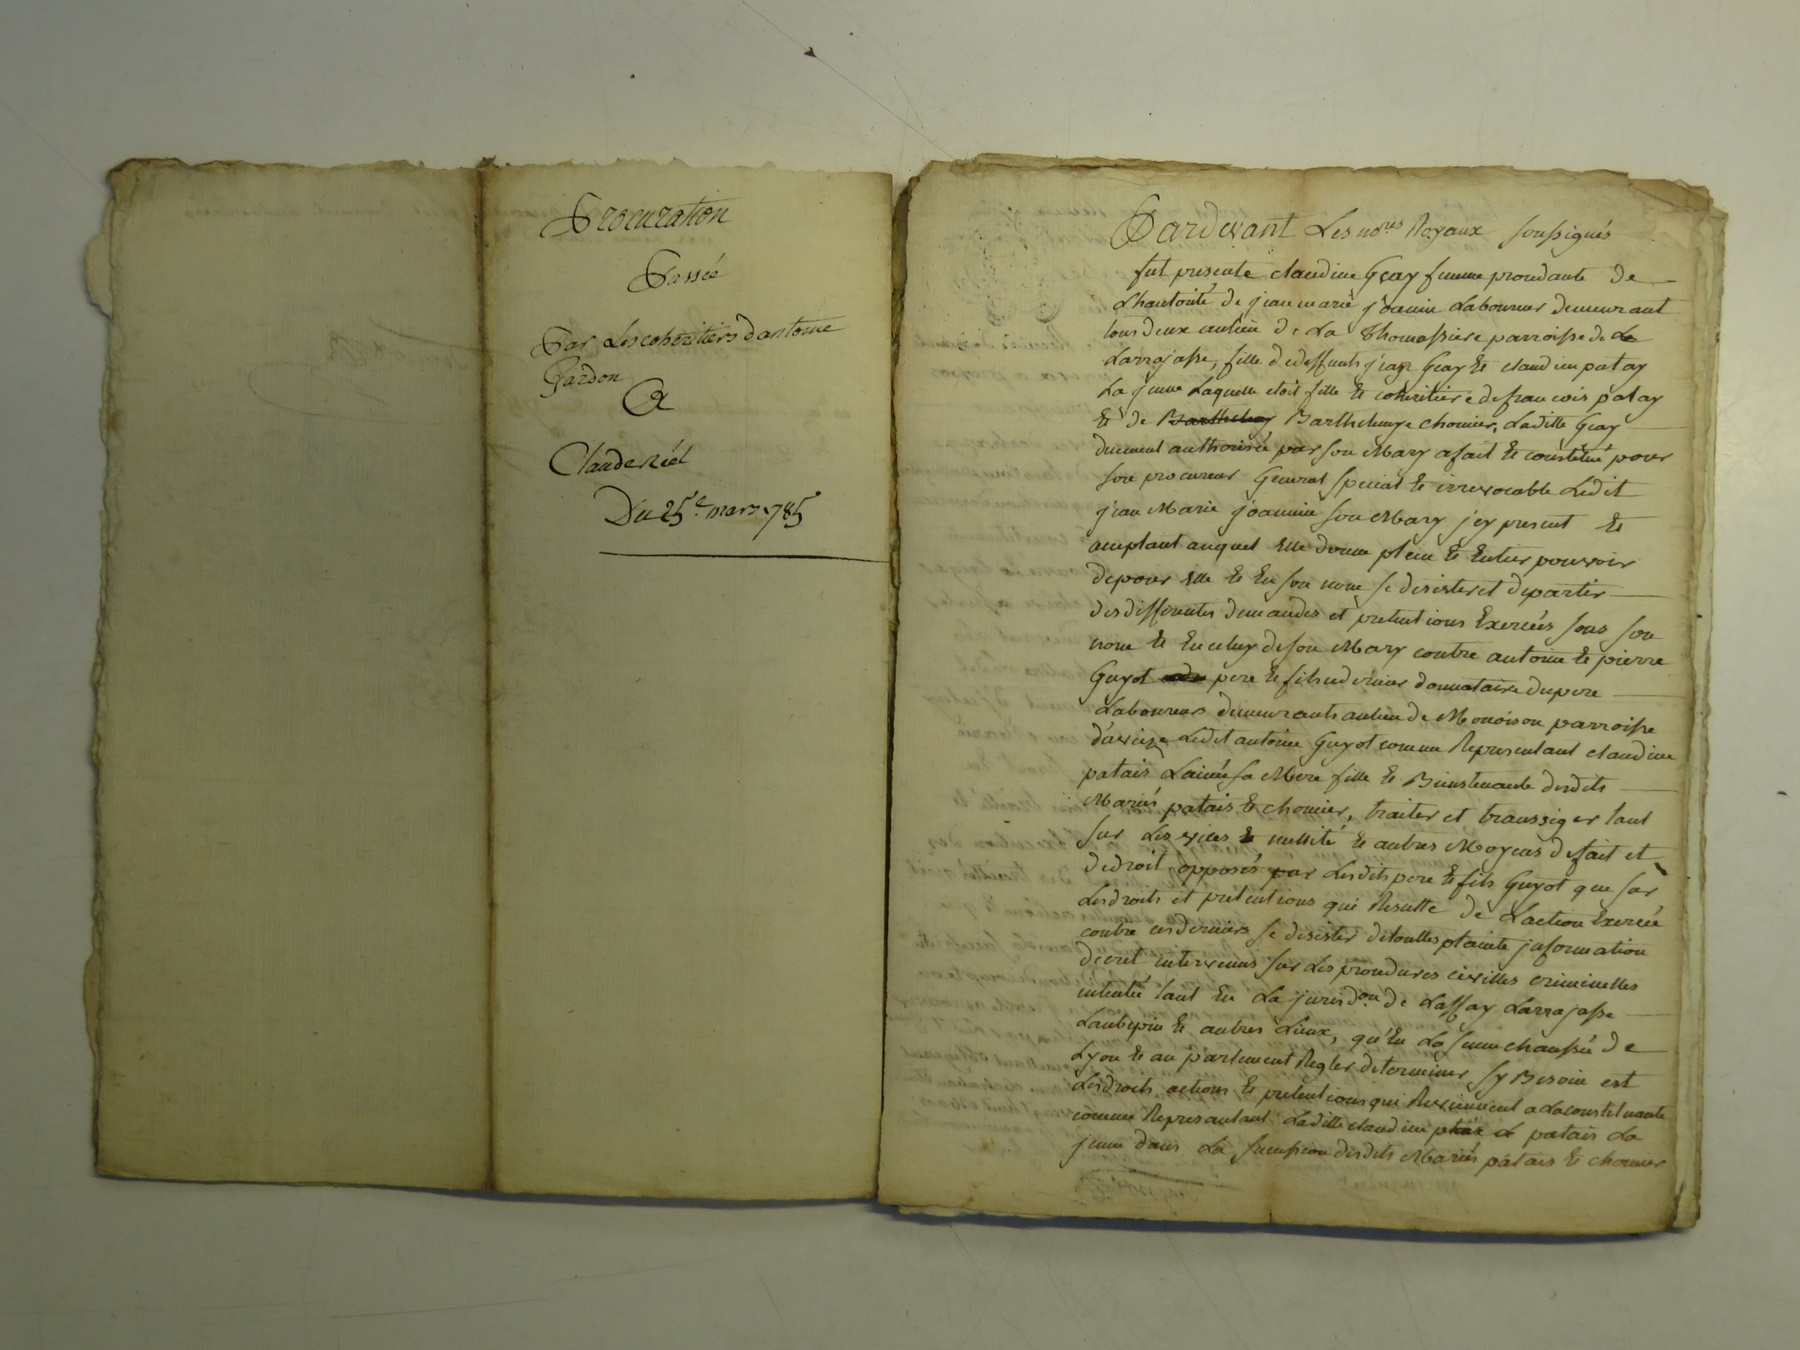 Procuration
Passée
Par Les cohéritiers d'antoine
Gardon
A
Claude Réel
Du 25e. mars 1785
Pardevant Les nores Royaux soussignés
fut presente claudine Gay femme procedante de
L'hautorité de jean marie joannin Laboureur demeurant
tous deux au lieu de La Thomassiere parroisse de
Larrajasse, fille de deffunts jean Gay et claudine patay
La jeune Laquelle etoit fille et coheritiere de francois patay
et de Barthelemy Barthelemye chomier, Ladille Gay
duement authorisée par son Mary a fait et constitué pour
son procureur General special et irrevocable Ledit
jean Marie joannin son Mary jcy present et
acceptant auquel Elle donne plein et Entier pouvoir
de pour Elle et En son nom se desister et departir
des differentes demandes et pretentions Exercées sous son
nom et En celuy de son Mary contre antoine et pierre
Guyot pere et fils ce dernier donnataire du pere
Laboureurs demeurants au lieu de Monoison parroisse
d'aveize Ledit antoine Guyot comme Representant claudine
patais L'ainée sa Mere fille et Bientenante desdits
Mariés patais et chomier, traiter et transsiger tant
sur Les vices et nullité et autres Moyens de fait et
de droit opposés par Lesdits pere et fils Guyot que sur
Les droits et pretentions qui Resulte de L'action Exercée
contre ces derniers se desister de touttes plainte jnformation
decret intervenus sur Les procedures civilles criminelles
intentée tant En La jurisdon de Laffay Larrajasse
Laubepin et autres Lieux, qu'En La Sennechaussée de
Lyon et au parlement Regler determiner sy Besoin est
Les droits actions et pretentions qui Reviennent a La constituante
comme Represantant Laditte claudine patais La
jeune dans La succession desdits Mariés patais et chomier